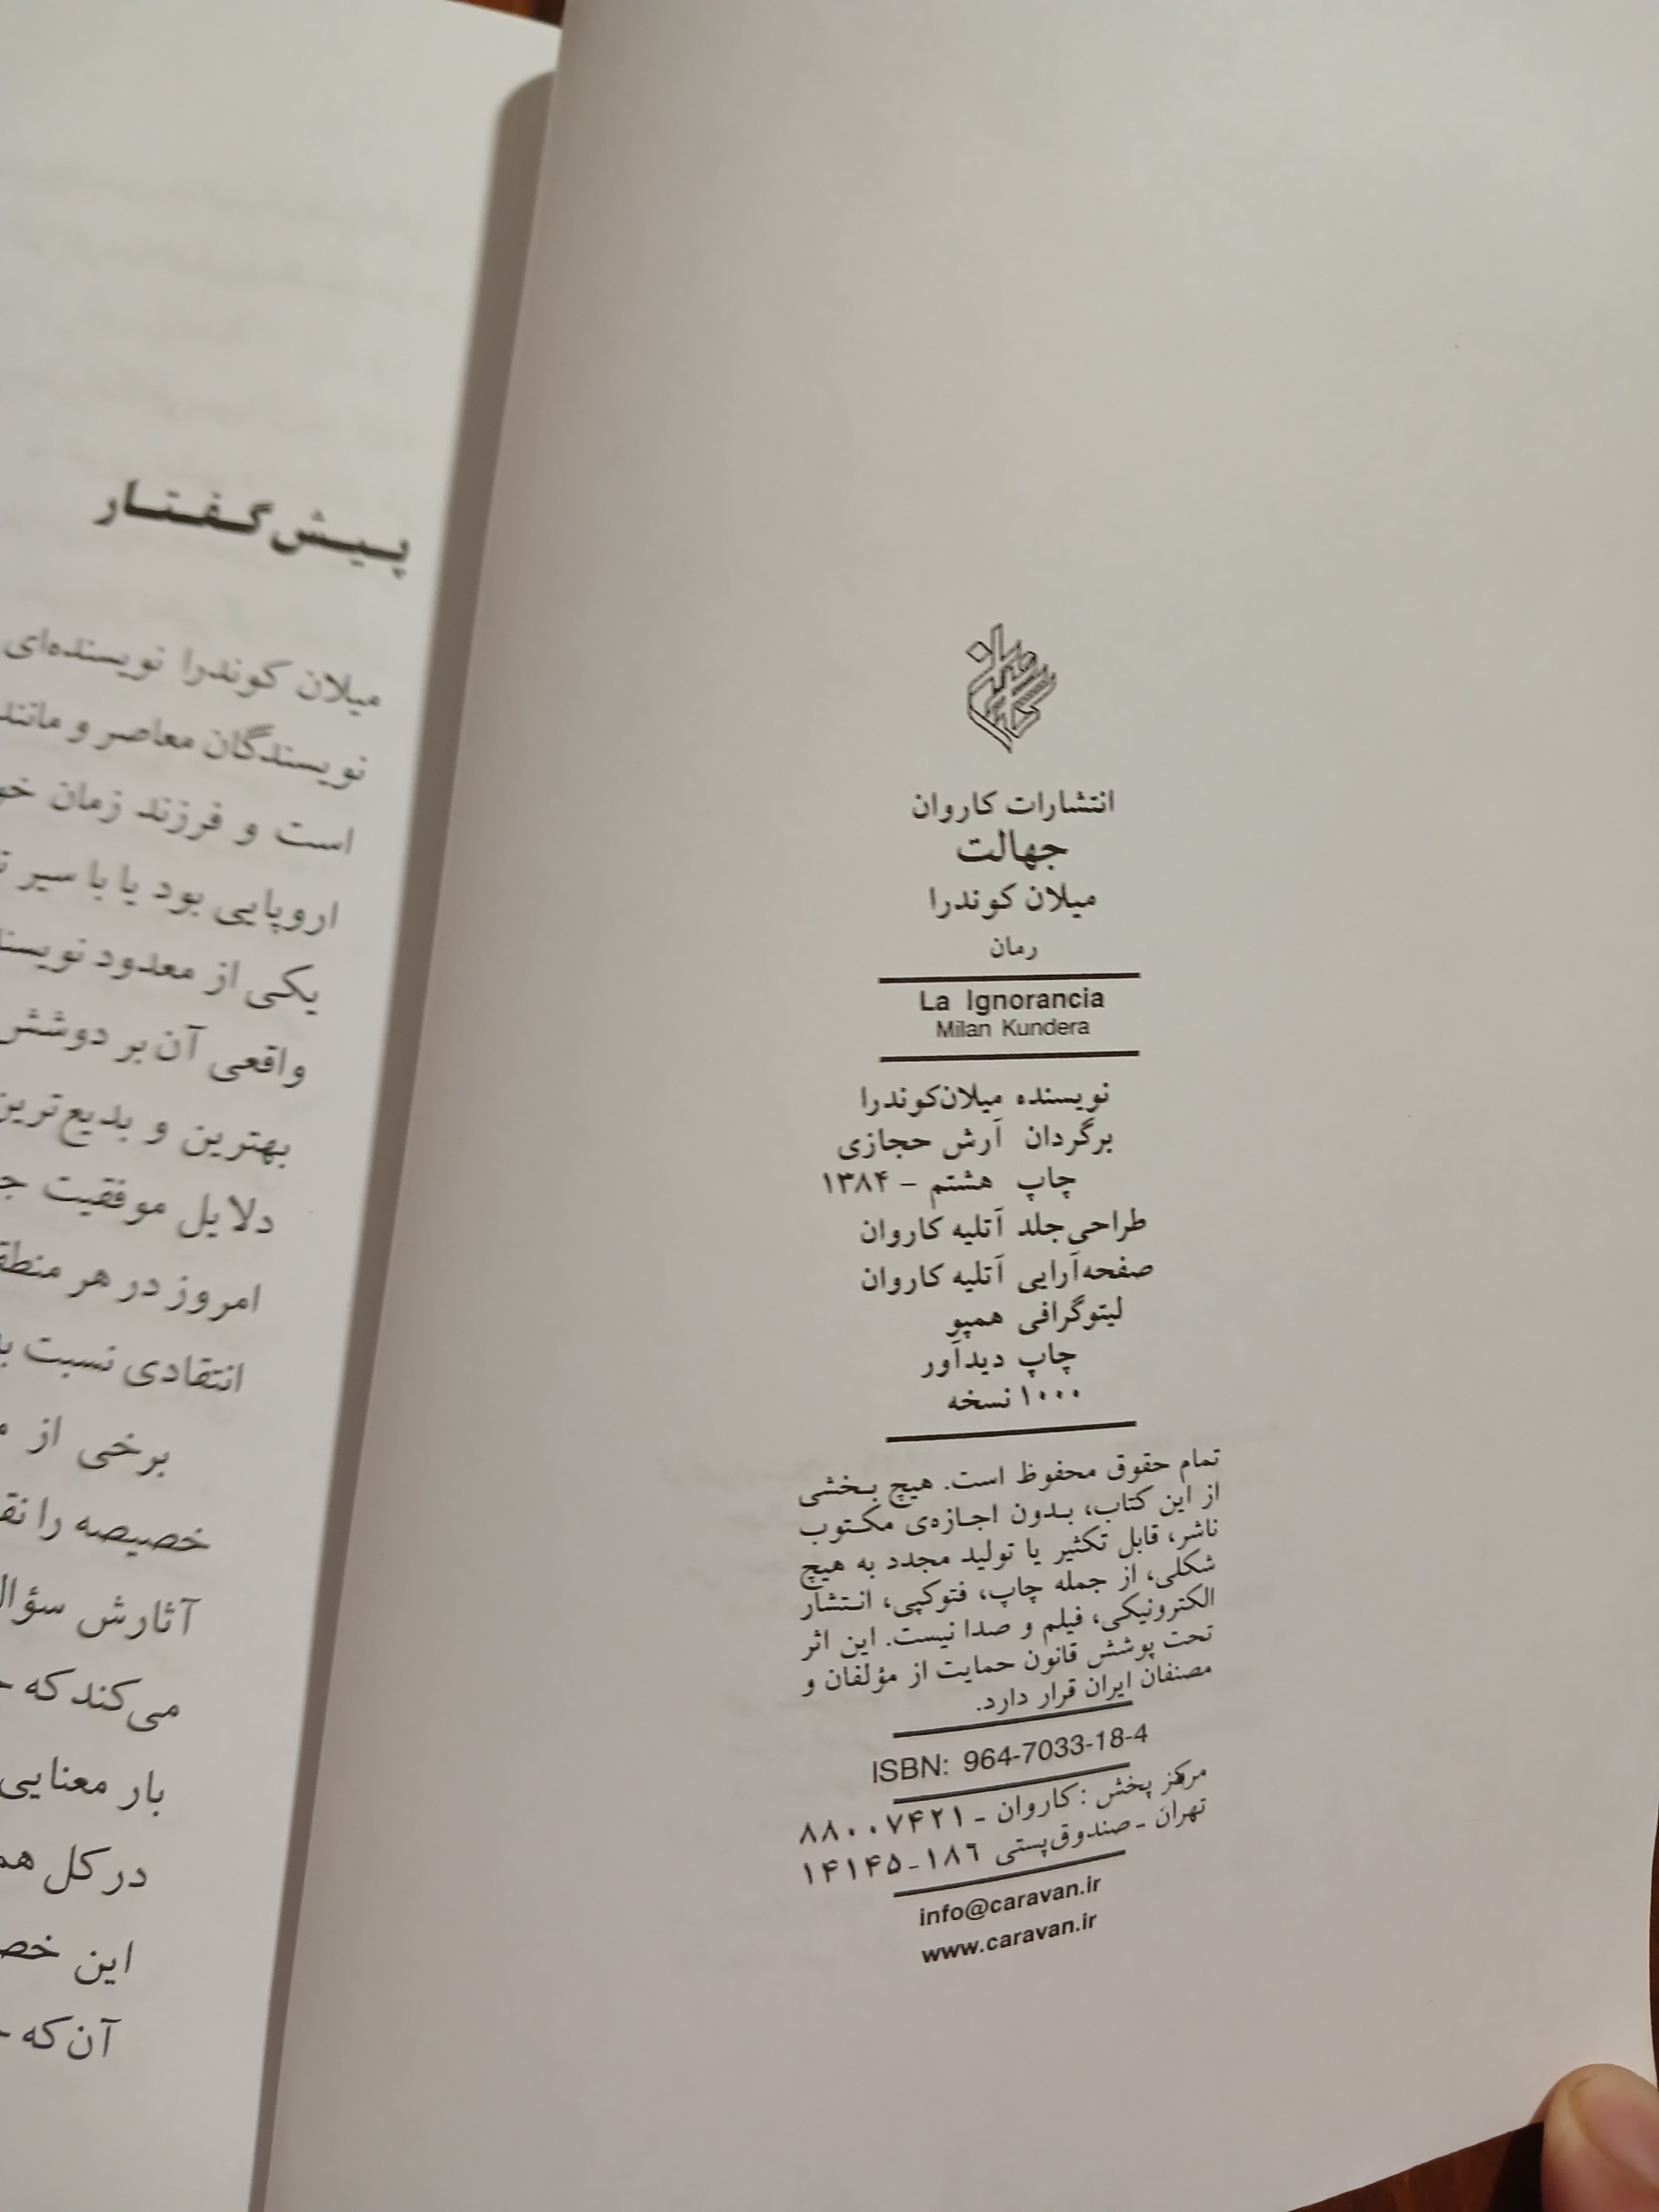 انتشارات کاروان
جهالت
میلان کوندرا
رمان
La Ignorancia
Milan Kundera
نویسنده میلان‌کوندرا
برگردان آرش حجازی
چاپ هشتم – ۱۳۸۴
طراحی‌جلد آتلیه کاروان
صفحه‌آرایی آتلیه کاروان
لیتوگرافی همپو
چاپ دیدآور
۱۰۰۰ نسخه
تمام حقوق محفوظ است. هیچ بخشی
از این کتاب، بدون اجازه‌ی مکتوب
ناشر، قابل تکثیر یا تولید مجدد به هیچ
شکلی، از جمله چاپ، فتوکپی، انتشار
الکترونیکی، فیلم و صدا نیست. این اثر
تحت پوشش قانون حمایت از مؤلفان و
مصنفان ایران قرار دارد.
ISBN: 964-7033-18-4
مرکز پخش : کاروان - ۸۸۰۰۷۴۲۱
تهران - صندوق‌پستی ۱۸۶-۱۴۱۴۵
info@caravan.ir
www.caravan.ir
پیش‌گفتار
میلان کوندرا نویسنده‌ای
نویسندگان معاصر و مانند
است و فرزند زمان
اروپایی بود یا با سیر
یکی از معدود
واقعی آن بر دوشش
بهترین و بدیع‌ترین
دلایل موفقیت
امروز در هر
انتقادی نسبت
برخی از
خصیصه را
آثارش
می‌کند که
بار معنایی
در کل
این
آن‌که